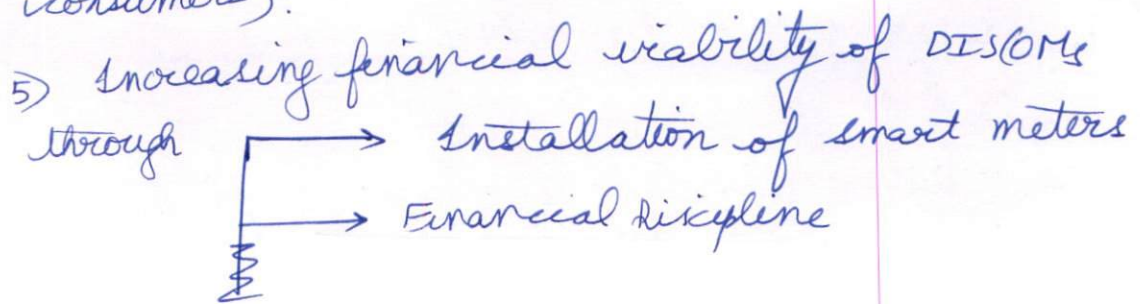 consumers).
5) Increasing financial viability of DISCOMs
through → Installation of smart meters
→ Financial Discipline